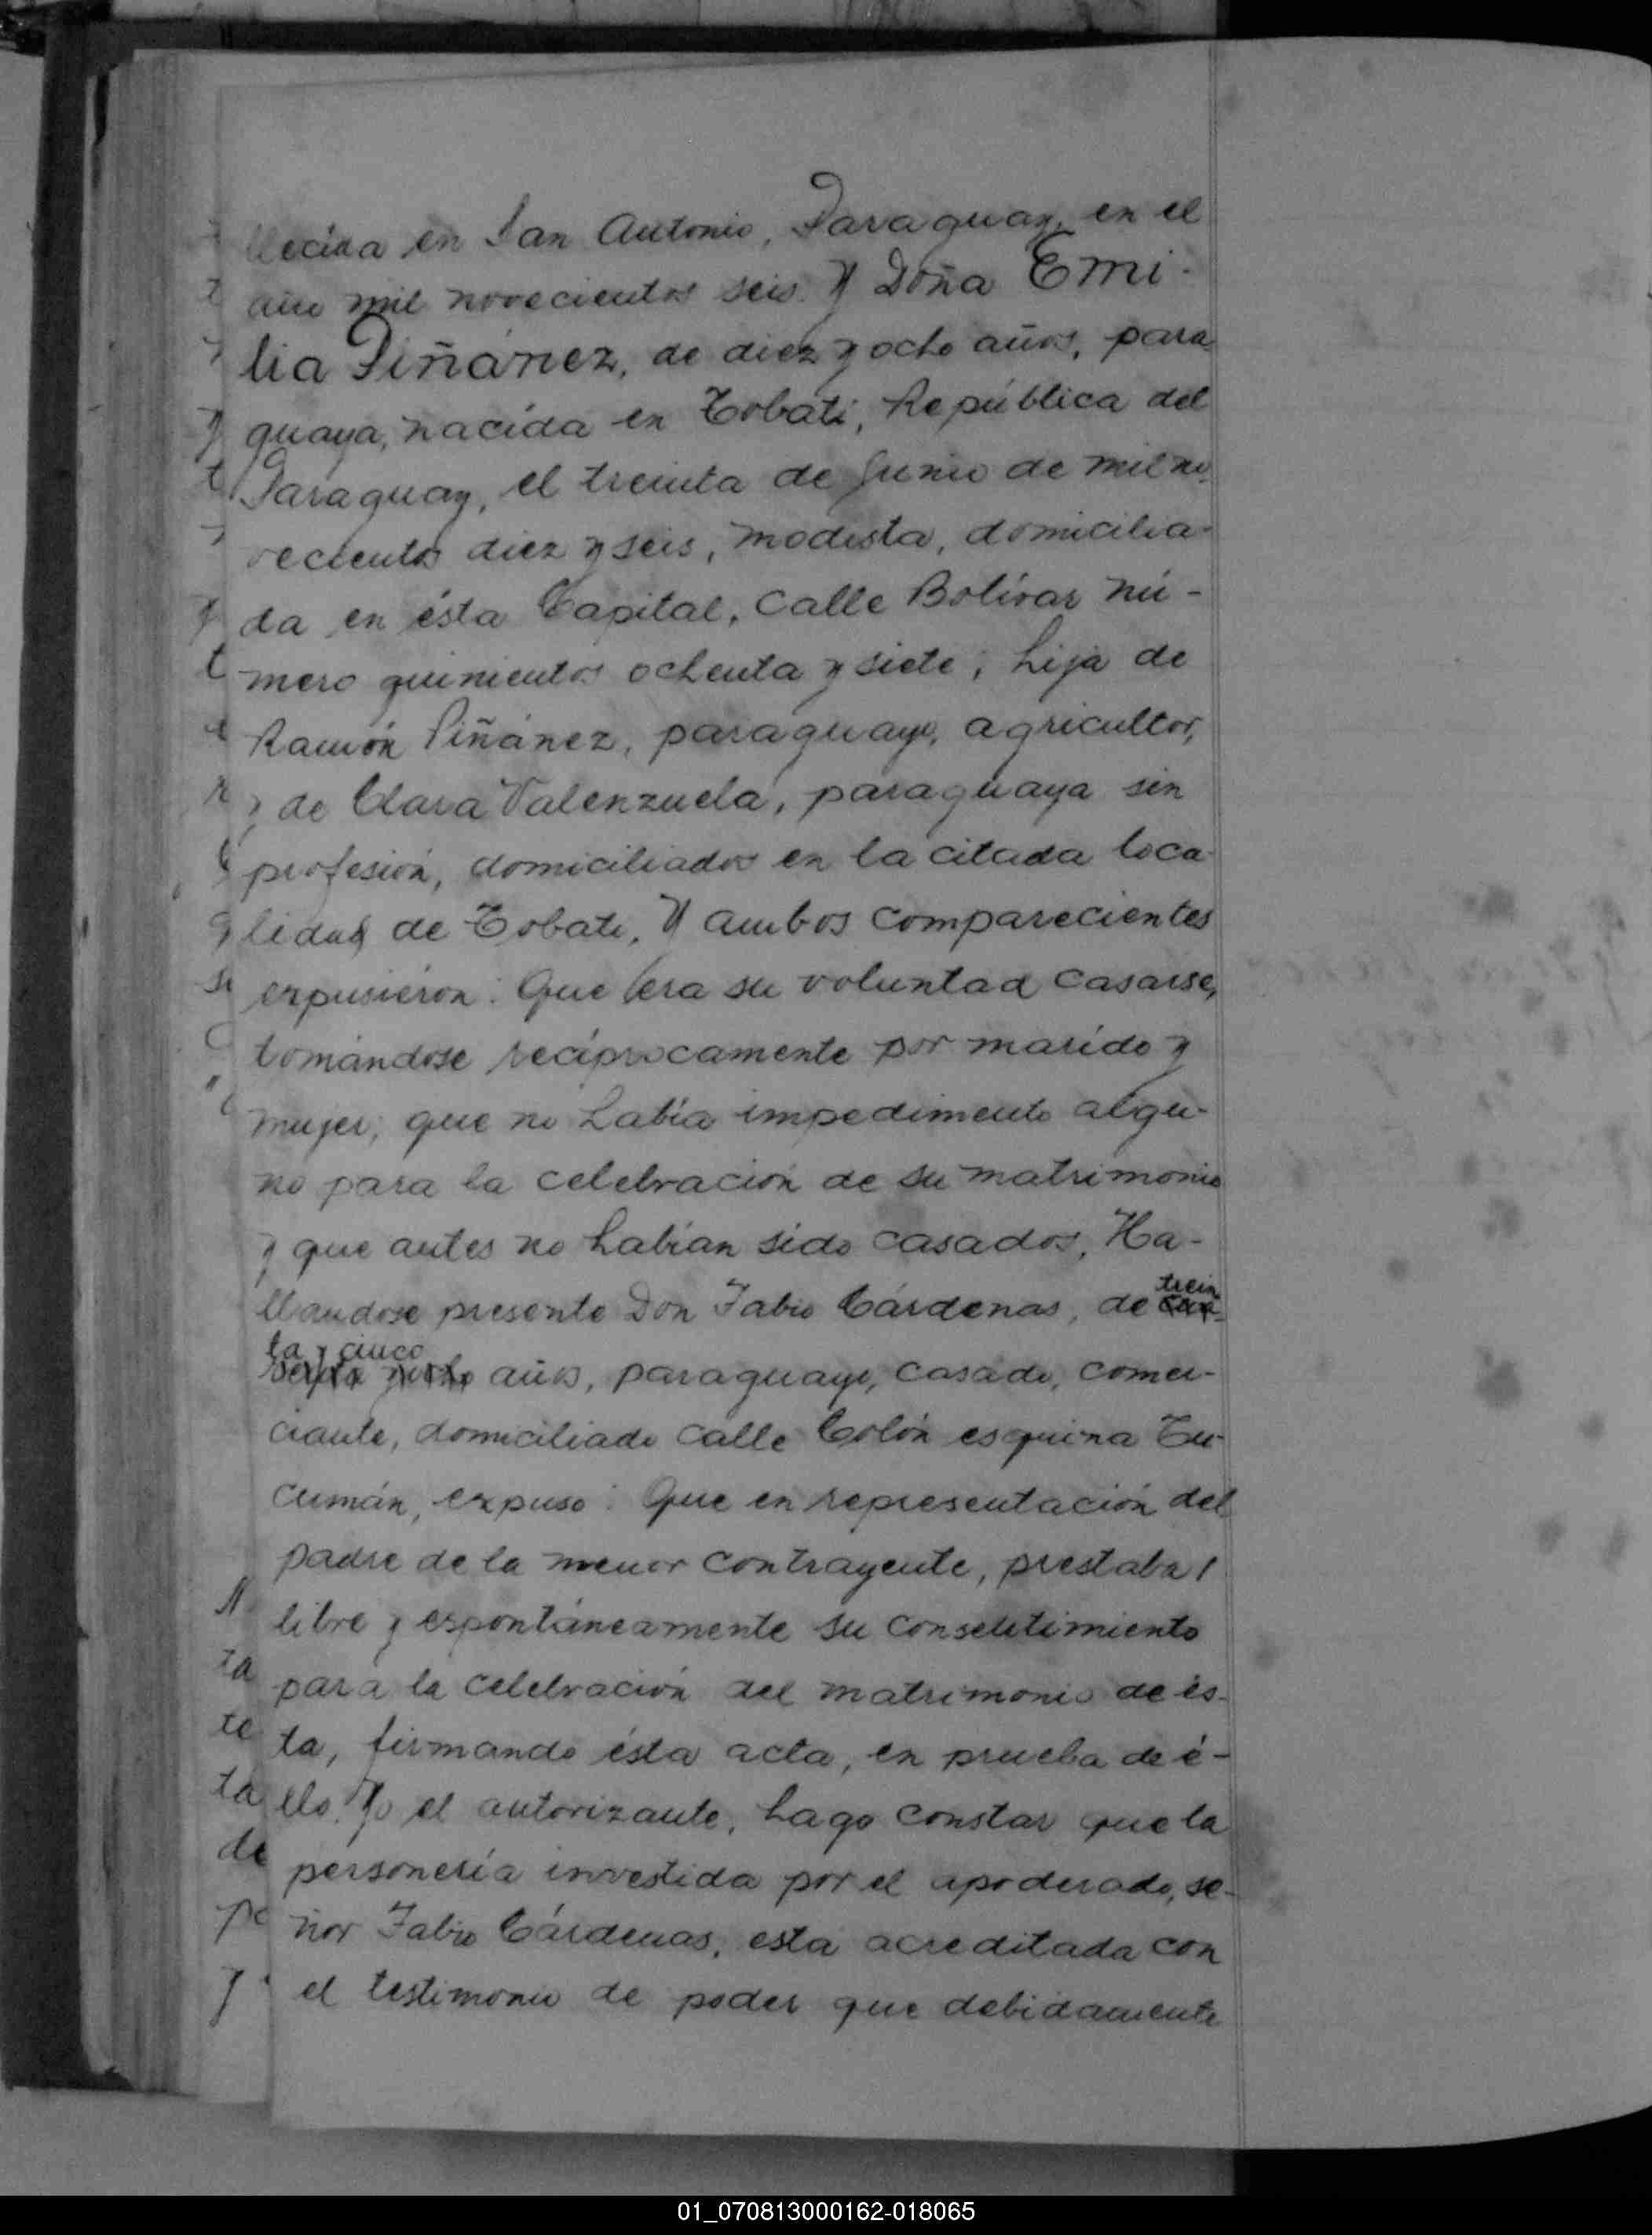 llecida en San Antonio, Paraguay, en el
año mil novecientos seis. Y Doña Emi-
lia Piñánez, de diez y ocho años, para-
guaya, nacida en Tobatí, República del
Paraguay, el treinta de Junio de mil no-
vecientos diez y seis, modista, domicilia-
da en ésta Capital, calle Bolívar nú-
mero quinientos ochenta y siete; hija de
Ramón Piñánez, paraguayo, agricultor,
y de Clara Valenzuela, paraguaya sin
profesión, domiciliados en la citada loca-
lidad de Tobatí. Y ambos comparecientes
expusieron: Que era su voluntad casarse,
tomándose recíprocamente por marido y
mujer; que no había impedimento algu-
no para la celebración de su matrimonio
y que antes no habían sido casados. Ha-
llandose presente Don Fabio Cárdenas, de trein
ta y cinco años, paraguayo, casado, comer-
ciante, domiciliado calle Colón esquina Tu-
cumán, expuso: Que en representación del
padre de la menor contrayente, prestaba
libre y espontáneamente su consentimiento
para la celebración del matrimonio de és-
ta, firmando ésta acta, en prueba de é-
llo. Yo el autorizante, hago constar que la
personería investida por el apoderado, se-
ñor Fabio Cárdenas, está acreditada con
el testimonio de poder que debidamente
01_070813000162-018065